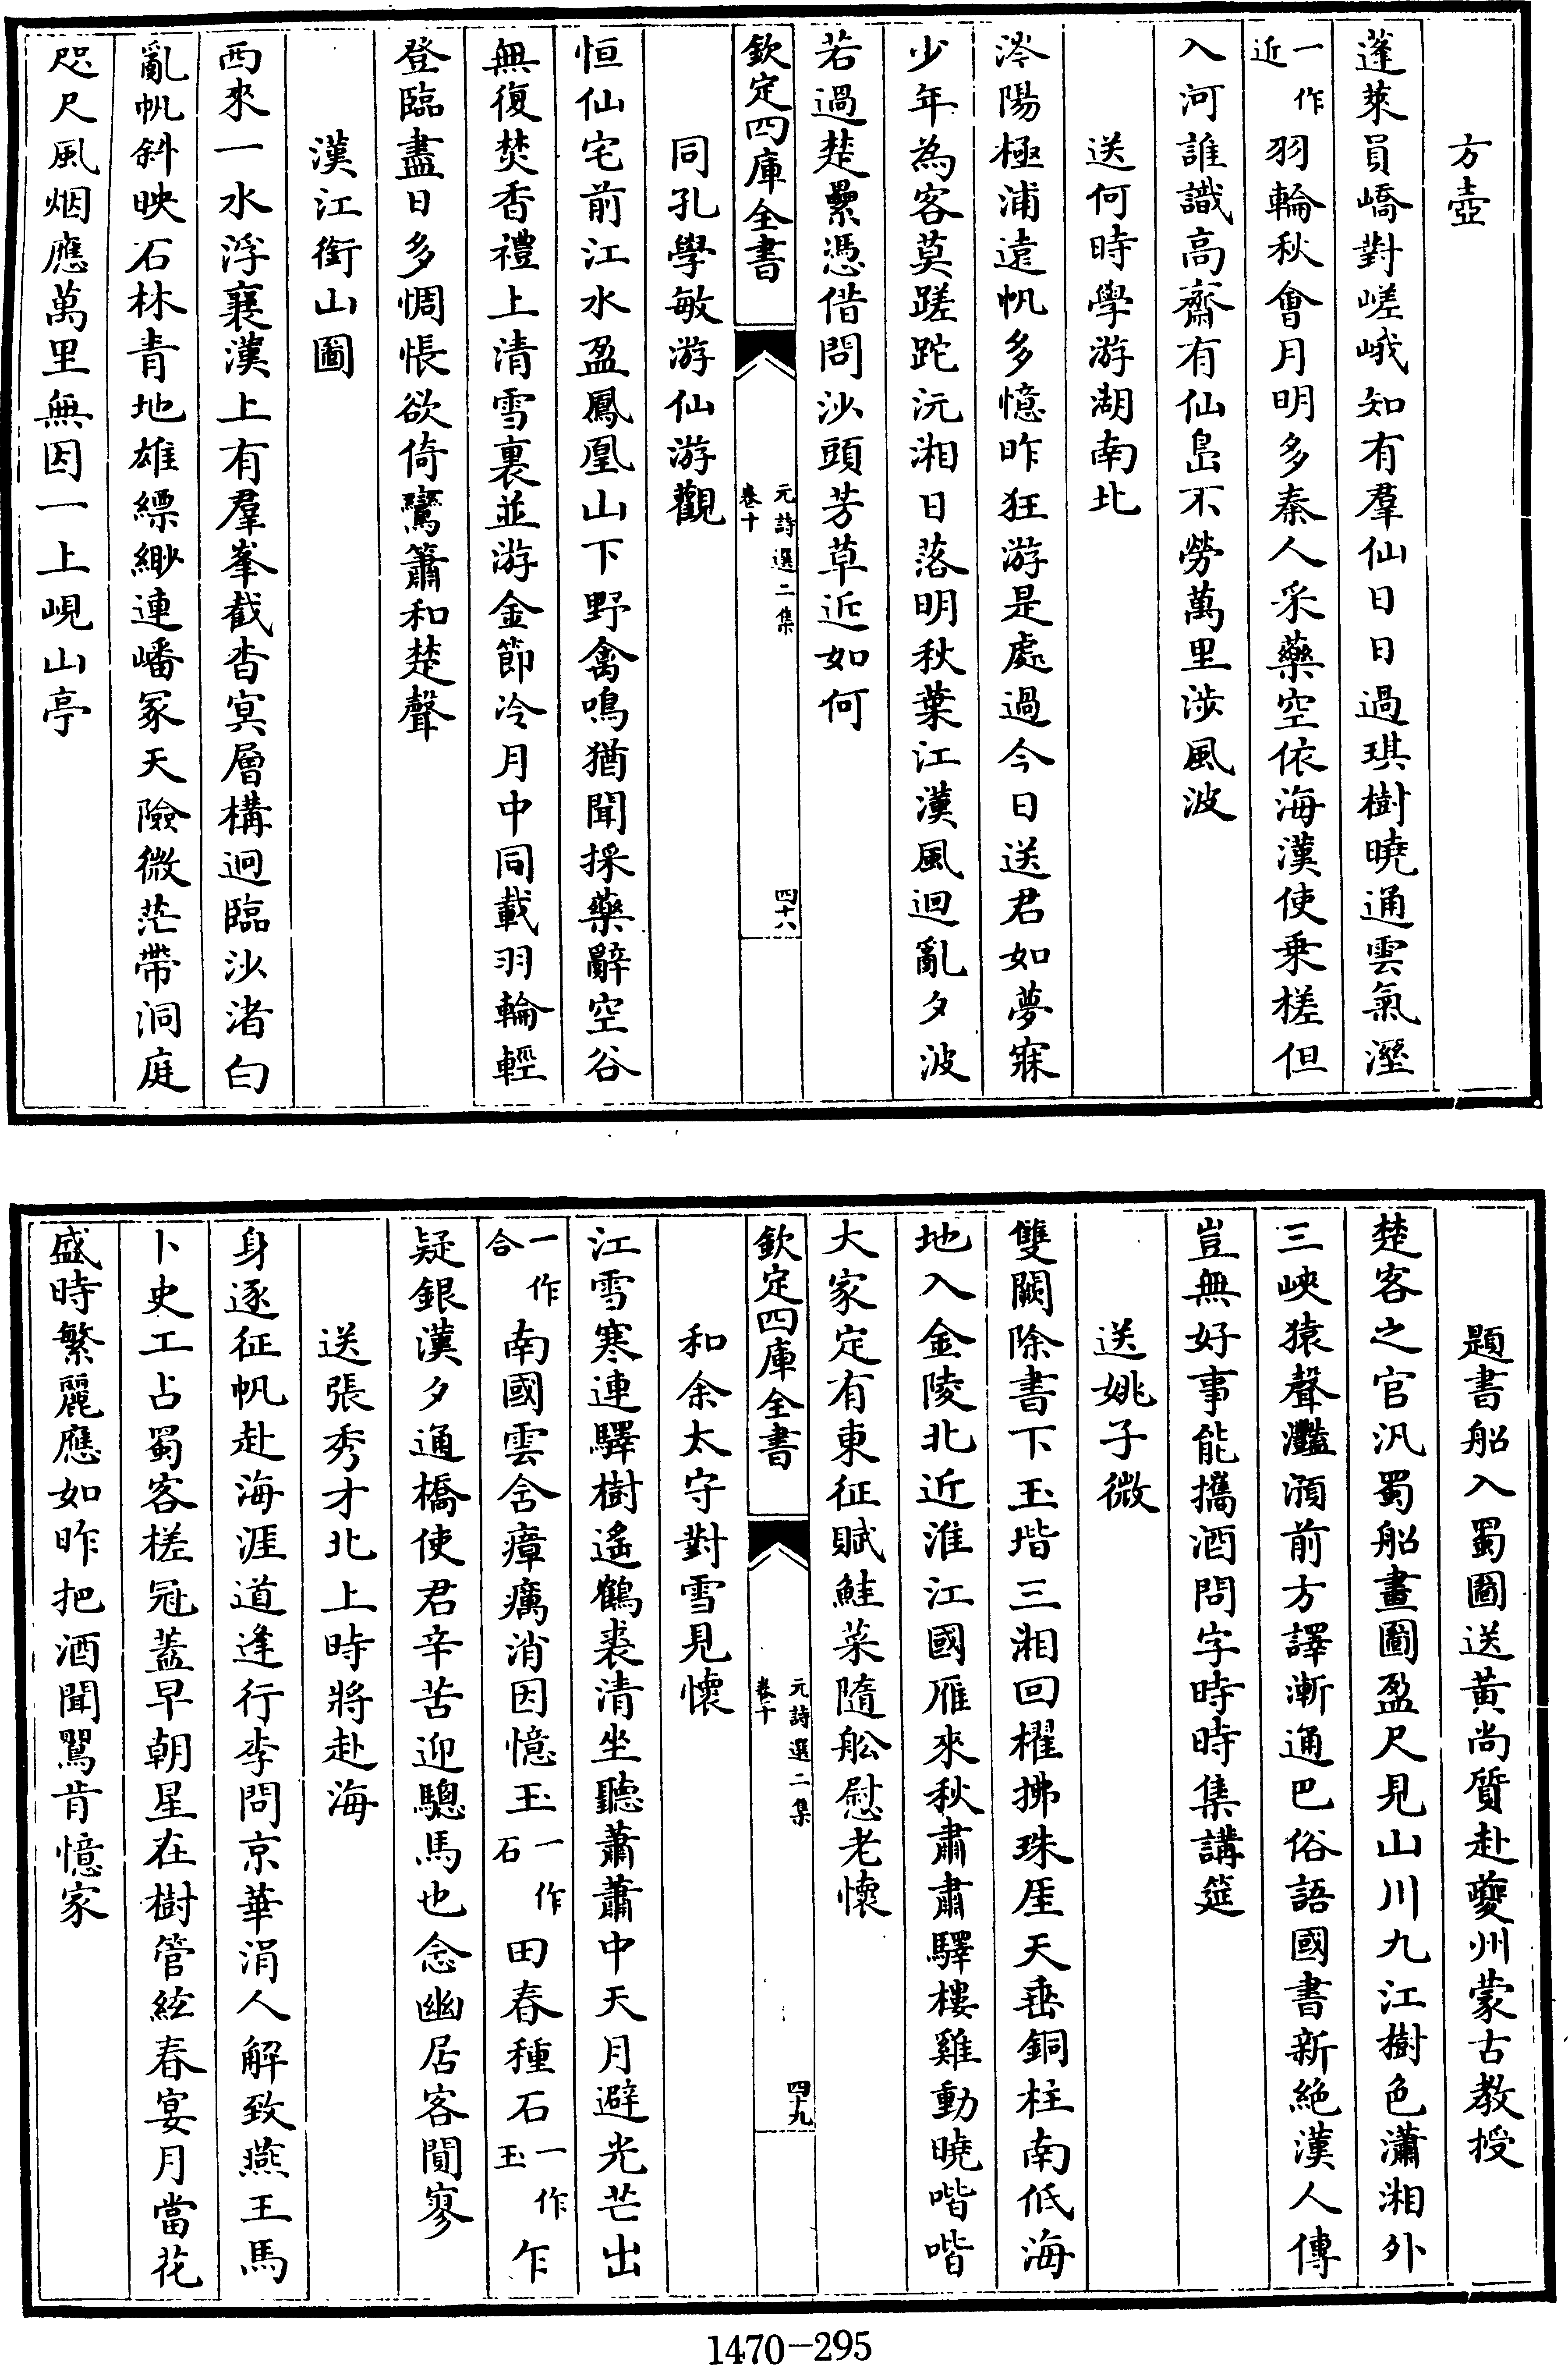 方壺
蓬萊員嶠對嵯峨知有羣仙日日過琪樹曉通雲氣溼
一作近羽輪秋會月明多秦人采藥空依海漢使乗槎但
入河誰識高齋有仙島不勞萬里涉風波
送何時學游湖南北
涔陽極浦遠帆多憶昨狂游是處過今日送君如夢寐
少年為客莫蹉跎沅湘日落明秋葉江漢風迴亂夕波
若過楚纍憑借問沙頭芳草近如何
欽定四庫全書
元詩選二集
卷十
四十八
同孔學敏游仙游觀
恒仙宅前江水盈鳳凰山下野禽鳴猶聞採藥辭空谷
無復焚香禮上清雪裏並游金節冷月中同載羽輪輕
登臨盡日多惆悵欲倚鸞簫和楚聲
漢江衘山圖
西來一水浮襄漢上有羣峯截杳冥層構迥臨沙渚白
亂帆斜映石林青地雄縹緲連嶓冢天險微茫帶洞庭
咫尺風烟應萬里無因一上峴山亭
題書船入蜀圖送黄尚質赴夔州蒙古教授
楚客之官汎蜀船畫圖盈尺見山川九江樹色瀟湘外
三峽猿聲灩澦前方譯漸通巴俗語國書新絶漢人傳
豈無好事能攜酒問字時時集講筵
送姚子微
雙闕除書下玉堦三湘回櫂拂珠厓天垂銅柱南低海
地入金陵北近淮江國雁來秋肅肅驛樓雞動曉喈喈
大家定有東征賦鮭菜隨舩慰老懷
欽定四庫全書
元詩選二集
卷十
四十九
和余太守對雪見懷
江雪寒連驛樹遙鶴裘清坐聽蕭蕭中天月避光芒出
一作合南國雲含瘴癘消因憶玉一作石田春種石一作玉乍
疑銀漢夕通橋使君辛苦迎驄馬也念幽居客閴寥
送張秀才北上時將赴海
身逐征帆赴海涯道逢行李問京華涓人解致燕王馬
卜史工占蜀客槎冠蓋早朝星在樹管絃春宴月當花
盛時繁麗應如昨把酒聞鶯肯憶家
1470-295